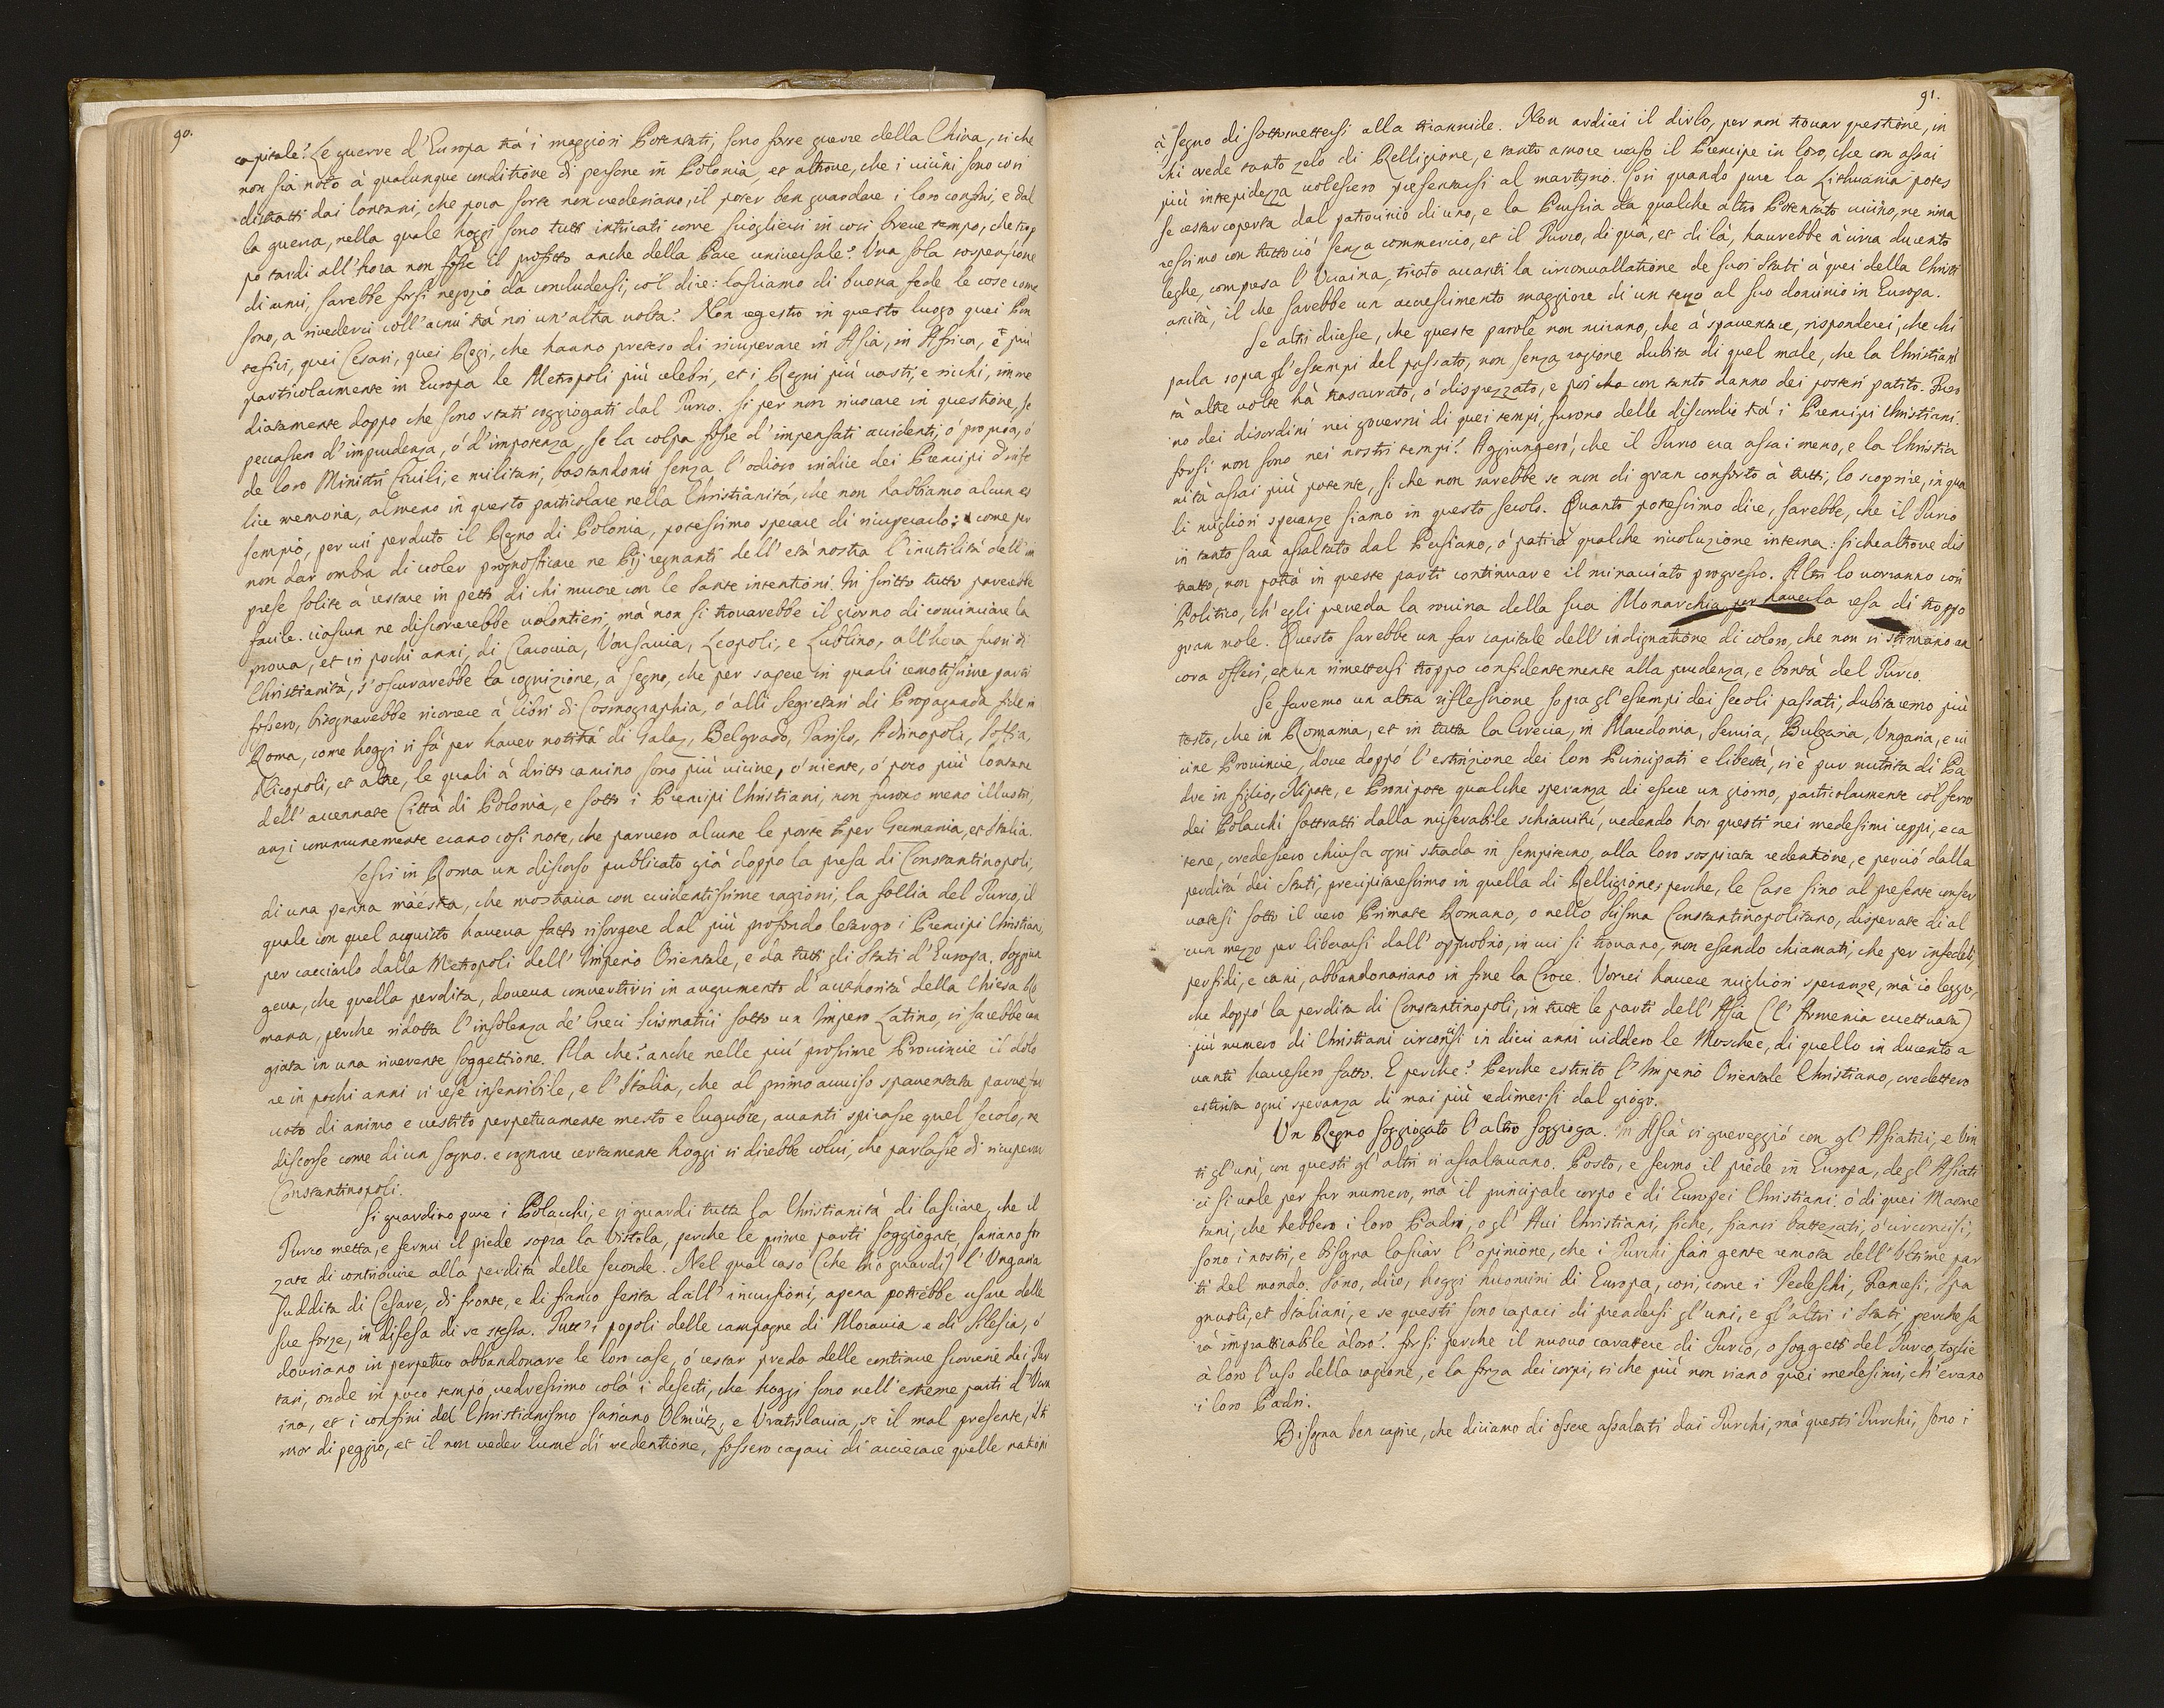 90.
capitale? Le guerre d'Europa trà i maggiori Potentati, sono forse guerre della China, si che
non sia noto à qualunque conditione di persone in Polonia, et altrove, che i vicini sono così
distratti dai lontani, che poca forse non vederiano, il poter ben guardare i loro confini, e dal
la guerra, nella quale hoggi sono tutti intricati come sciogliersi in così breve tempo, che trop
po tardi all'hora non fosse il profitto anche della Pace universale? Una sola sospensione
di armi, sarebbe forsi negozio da concludersi, col dire: lasciamo di buona fede le cose come
sono, a rivederci coll'armi trà noi un'altra volta? Non registro in questo luogo quei Pon
tefici, quei Cesari, quei Regi, che hanno preteso di ricuperare in Asia, in Africa, e più
particolarmente in Europa le Metropoli più celebri, et i Regni più vasti, e ricchi, imme
diatamente doppo che sono stati soggiogati dal Turco. Si per non rivocare in questione, se
peccassero d'imprudenza, ò d'impotenza, se la colpa fosse d'impensati accidenti, ò propria, ò
de loro Ministri Civili, e militari, bastandomi senza l'odioso indice dei Prencipi d'infe
lice memoria, almeno in questo particolare nella Christianità, che non habbiamo alcun es
sempio, per cui perduto il Regno di Polonia, potessimo sperare di ricuperarlo; come per
non dar ombra di voler prognosticare ne Pij regnanti dell'età nostra l'inutilità dell'im
prese solite à restare in petto di chi muore con le sante intentioni. In scritto tutto parerebbe
facile. ciascun ne discorrerebbe volontieri, mà non si trovarebbe il giorno di cominciare la
prova, et in pochi anni, di Cracovia, Varsavia, Leopoli, e Lublino, all'hora fuori di
Christianità, s'oscurarebbe la cognizione, à segno, che per sapere in quali remotissime parti
fossero, bisognarebbe ricorrere à libri di Cosmographia, ò alli Segretari di Propaganda fide in
Roma, come hoggi si fà per haver notitia di Galaz, Belgrado, Varisco, Adrinopoli, Soffia,
Nicopoli, et altre, le quali à dritto camino sono più vicine, ò niente, ò poco più lontane
dell'accennate Città di Polonia, e sotto i Prencipi Christiani, non furono meno illustri,
anzi communemente erano così note, che parvero alcune le porte per Germania, et Italia.
Lessi in Roma un discorso publicato già doppo la presa di Constantinopoli,
di una penna maestra, che mostrava con evidentissime ragioni, la follia del Turco, il
quale con quel acquisto haveva fatto risorgere dal più profondo letargo i Prencipi Christiani,
per cacciarlo dalla Metropoli dell'Imperio Orientale, e da tutti gli Stati d'Europa. Soggiun
geva, che quella perdita, doveva convertirsi in augumento d'authorità della Chiesa Ro
mana, perche ridotta l'insolenza de' Greci Scismatici sotto un Impero Latino, si sarebbe can
giata in una riverente soggettione. Ma che? anche nelle più prossime Provincie il dolo
re in pochi anni si rese insensibile, e l'Italia, che al primo avviso spaventata parve
voto di animo e vestito perpetuamente mesto e lugubre, avanti spirasse quel secolo, ne
discorse come di un sogno. e sognare certamente hoggi si direbbe colui, che parlasse di ricuperar
Constantinopoli.
Si guardino pure i Polacchi, e si guardi tutta la Christianità di lasciare, che il
Turco metta, e fermi il piede sopra la Vistola, perche le prime parti soggiogate, sariano for
zate di contribuire alla perdita delle seconde. Nel qual caso (che Dio guardi) l'Ungaria
Suddita di Cesare, di fronte, e di fianco ferita dall'incursioni, apena potrebbe usare delle
sue forze, in difesa di se stessa. Tutt'i popoli delle campagne di Moravia e di Silesia, ò
dovriano in perpetuo abbandonare le loro case, ò restar preda delle continue scorrerie dei Tar
tari, onde in poco tempo, vedressimo colà i deserti, che hoggi sono nell'estreme parti d'Vcra
ina, et i confini del Christianismo sariano Olmütz, e Vratislavia, se il mal presente, il ti
mor di peggio, et il non veder lume di redentione, fossero capaci di accecare quelle nationi
91.
à segno di sottomettersi alla tirannide. Non ardirei il dirlo, per non trovar questione, in
chi crede tanto zelo di Relligione, e tanto amore verso il Prencipe in loro, che con assai
più intrepidezza volessero presentarsi al martyrio. Così quando pure la Lithuania potes
se restar coperta dal patrocinio di uno, e la Prussia da qualche altro Potentato vicino, ne rima
ressimo con tutto ciò senza commercio, et il Turco, di quà, et di là, haurebbe à circa ducento
leghe, compresa l'Vcraina, tirato avanti la circonvallatione de suoi Stati à quei della Christi
anità, il che sarebbe un accrescimento maggiore di un terzo al suo dominio in Europa.
Se altri dicesse, che queste parole non mirano, che à spaventare, risponderei, che chi
parla sopra gl'essempi del passato, non senza ragione dubita di quel male, che la Christiani
tà altre volte hà trascurato, ò disprezzato, e poi con tanto danno dei posteri patito. Furo
no dei disordini nei governi di quei tempi, furono delle discordie trà i Prencipi Christiani.
forsi non sono nei nostri tempi? Aggiungerò, che il Turco era assai meno, e la Christia
nità assai più potente, si che non sarebbe se non di gran conforto à tutti, lo scoprire, in qua
li migliori speranze siamo in questo secolo. Quanto potessimo dire, sarebbe, che il Turco
in tanto sarà assaltato dal Persiano, ò patirà qualche rivoluzione interna: si che altrove dis
tratto, non potrà in queste parti continuare il minacciato progresso. Altri lo vorranno così
Politico, ch'egli preveda la rovina della sua Monarchia per haverla resa di troppo
gran mole. Questo sarebbe un far capitale dell'indignatione di coloro, che non si stimano an
cora offesi, et un rimettersi troppo confidentemente alla prudenza, e bontà del Turco.
Se faremo un altra riflessione sopra gl'essempi dei secoli passati, dubitaremo più
tosto, che in Romania, et in tutta la Grecia, in Macedonia, Servia, Bulgaria, Ungaria, e vi
cine Provincie, dove doppò l'estinzione dei loro Principati e libertà, si è pur nutrita di Pa
dre in figlio, Nipote, e Pronipote qualche speranza di essere un giorno, particolarmente col ferro
dei Polacchi sottratti dalla miserabile schiavitù, vedendo hor questi nei medesimi ceppi, e ca
tene, credessero chiusa ogni strada in sempiterno, alla loro sospirata redentione, e perciò dalla
perdita dei Stati, precipitaressimo in quella di Relligione, perche, le Case sino al presente conser
vatesi sotto il vero Primate Romano, o nello Scisma Constantinopolitano, disperate di al
cun mezzo per liberarsi dall'opprobrio, in cui si trovano, non essendo chiamati, che per infedeli,
perfidi, e cani, abbandonariano in fine la Croce. Vorrei havere migliori speranze, mà io leggo,
che doppò la perdita di Constantinopoli, in tutte le parti dell'Asia (l'Armenia eccettuata)
più numero di Christiani circoncisi in dieci anni viddero le Moschee, di quello in ducento a
vanti havessero fatto. E perche? Perche estinto l'Imperio Orientale Christiano, credettero
estinta ogni speranza di mai più redimersi dal giogo.
Un Regno soggiogato l'altro soggioga. In Asia si guereggiò con gl'Asiatici, e vin
ti gl'uni, con questi gl'altri si assaltavano. Posto, e fermo il piede in Europa, degl'Asiati
ci si vale per far numero, mà il principale corpo è di Europei Christiani. ò di quei Maome
tani, che hebbero i loro Padri, o gl'Avi Christiani, siche, siansi battezati, ò circoncisi,
sono i nostri, e bisogna lasciar l'opinione, che i Turchi sian gente remota dell'ultime par
ti del mondo. Sono, dico, hoggi huomini di Europa, così, come i Tedeschi, Francesi, Spa
gnuoli, et Italiani, e se questi sono capaci di prendersi gl'uni, e gl'altri i Stati, perche sa
rà impratticabile à loro? forsi perche il nuovo carattere di Turco, o soggetti del Turco, toglie
à loro l'uso della ragione, e la forza dei corpi, si che più non siano quei medesimi, ch'erano
i loro Padri.
Bisogna ben capire, che diciamo di essere assaltati dai Turchi, mà questi Turchi, sono i